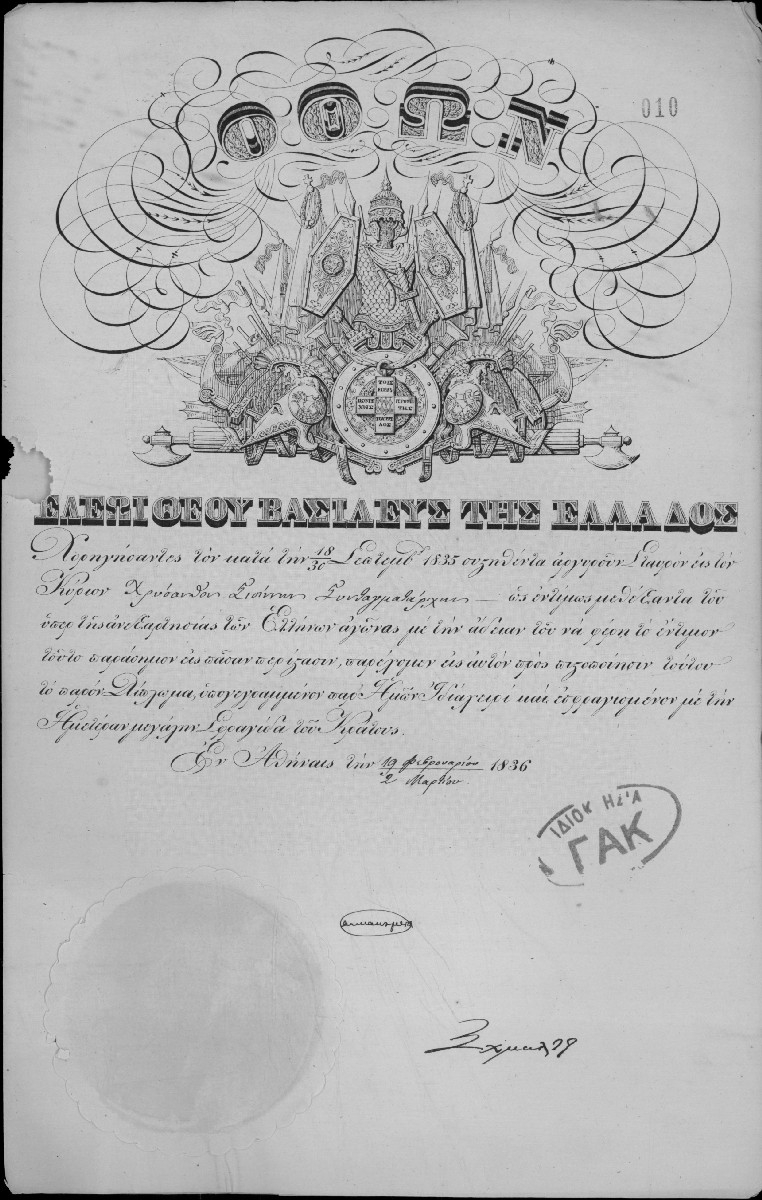 010
ΟΘΩΝ
ΕΛΕΩΙ ΘΕΟΥ ΒΑΣΙΛΕΥΣ ΤΗΣ ΕΛΛΑΔΟΣ
Χορηγήσαντες τὸν κατὰ τὴν 18/30 Σεπτεμβ. 1835 συστηθέντα ἀργυροῦν Σταυρὸν εἰς τὸν
Κύριον Χρύσανθον Σισίνην Συνταγματάρχην — ὡς ἐντίμως μεθέξαντα τοῦ
ὑπὲρ τῆς ἀνεξαρτησίας τῶν Ἑλλήνων ἀγῶνος μὲ τὴν ἄδειαν τοῦ νὰ φέρῃ τὸ ἔντιμον
τοῦτο παράσημον εἰς πᾶσαν περίστασιν, παρέχομεν εἰς αὐτὸν πρὸς πιστοποίησιν τούτου
τὸ παρὸν Δίπλωμα, ὑπογεγραμμένον παρ' Ἡμῶν Ἰδιοχείρως καὶ ἐσφραγισμένον μὲ τὴν
Ἡμετέραν μεγάλην Σφραγίδα τοῦ Κράτους.
Ἐν Ἀθήναις τὴν 19 Φεβρουαρίου / 2 Μαρτίου 1836
ΓΑΚ